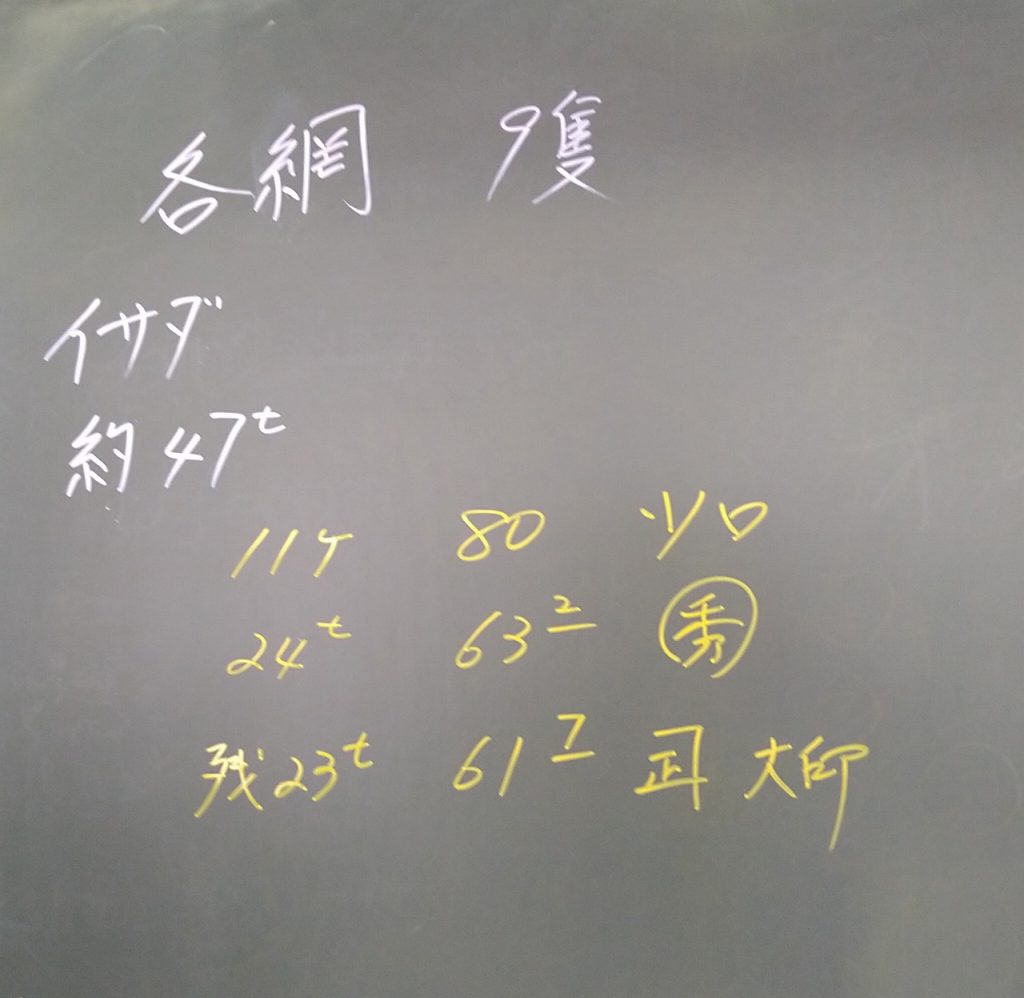 各網 9隻
イサダ
約47t
11ケ 80 ソロ
24t 63 2 秀
残23t 61 7 大印